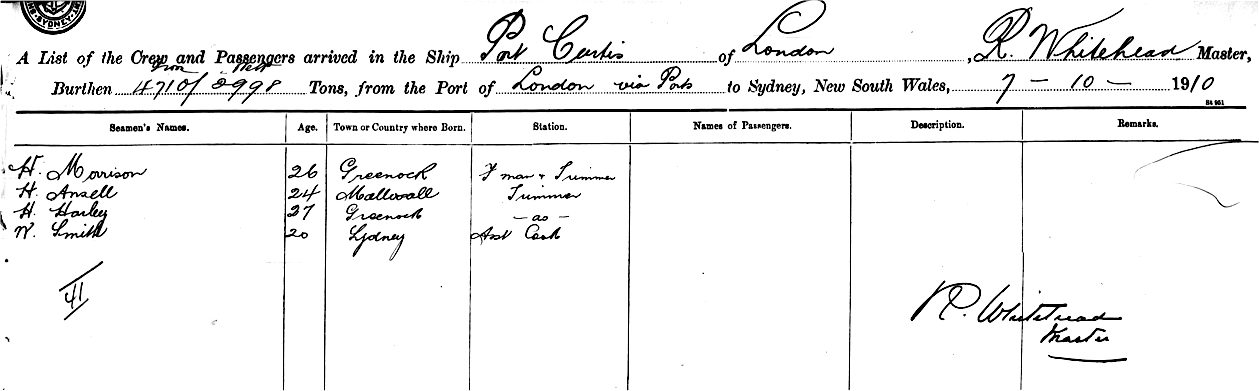 SYDNEY
A List of the Crew and Passengers arrived in the Ship Port Curtis of London, R. Whitehead Master,
Gross Nett
Burthen 4710/2998 Tons, from the Port of London via Ports to Sydney, New South Wales, 7 - 10 - 1910
Seamen's Names. Age. Town or Country where Born. Station. Names of Passengers. Description. Remarks.
H. Morrison 26 Greenock F man & Trimmer
H. Ansell 24 Trimmer
H. Harley 27 Greenock - do -
W. Smith 20 Sydney Asst Cook
41
R. Whitehead
Master